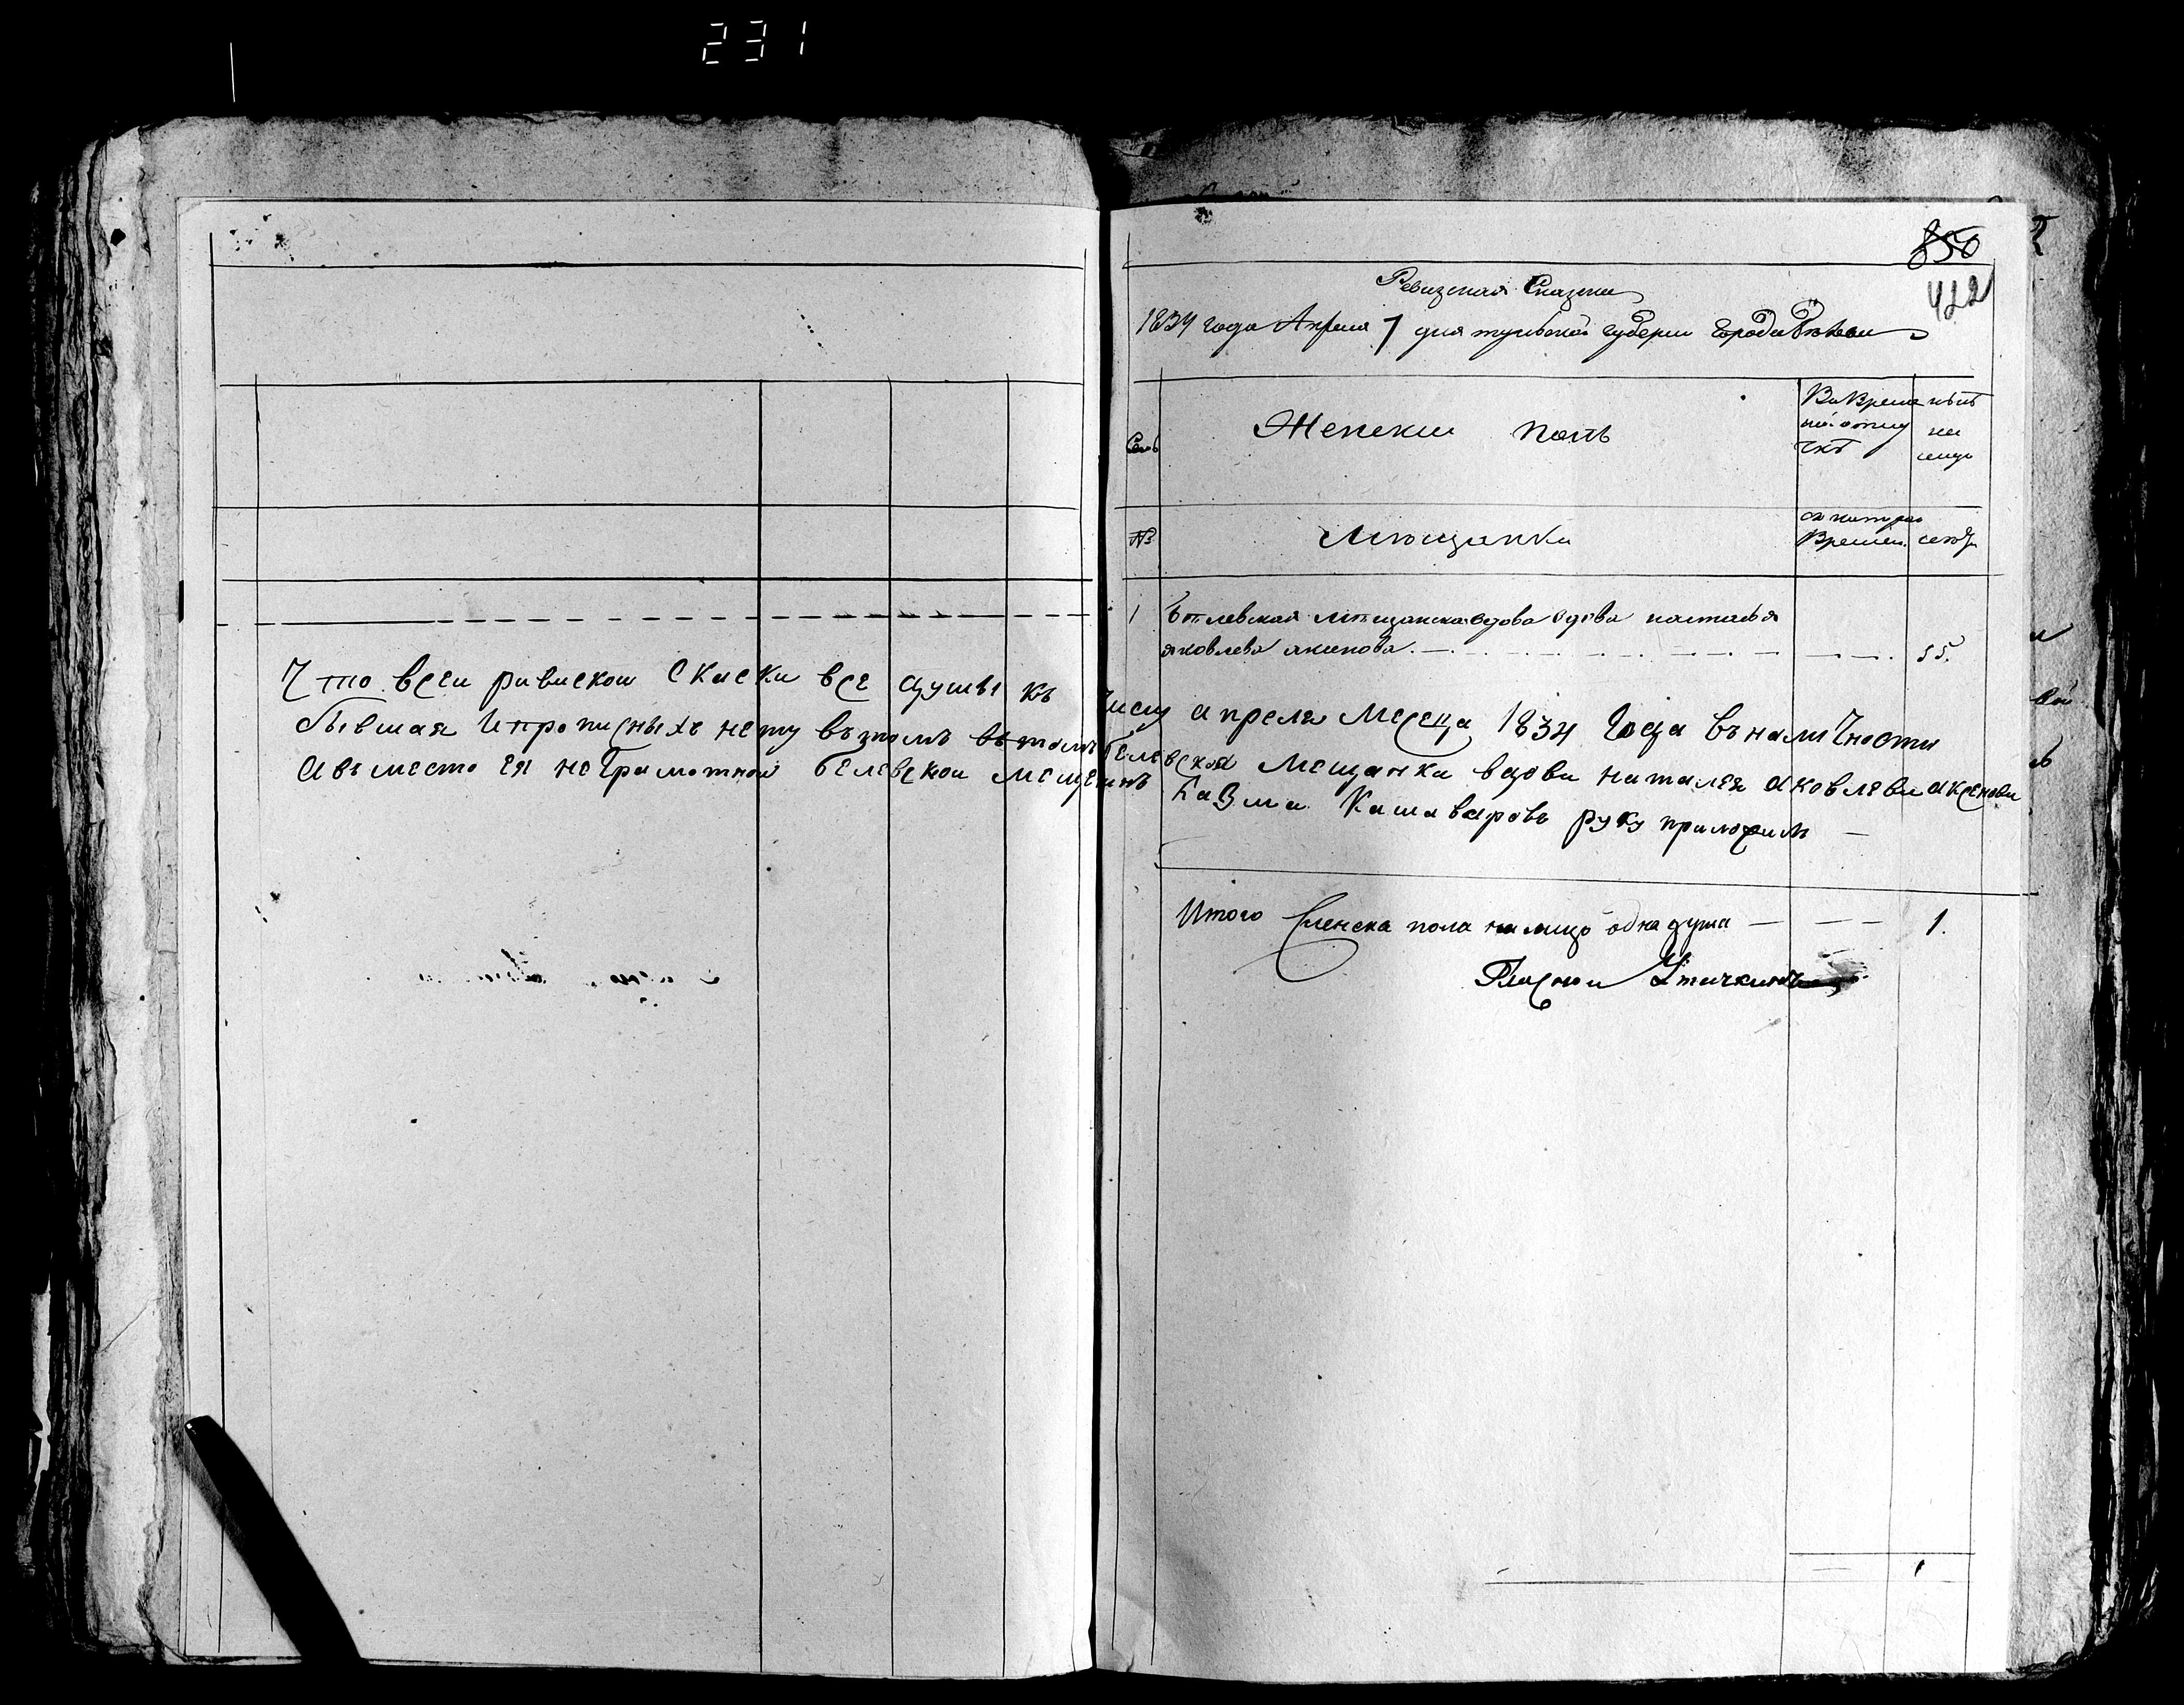 231
850
422
Ревизская Сказка
1834 года Апреля 7 дня тульской губерни города Бѣлева
Семь
Женски полъ
Во время
отлу
чкѣ
нынѣ
на
лицо
№
Мѣщанки
съ котораго
Времен.
лета
1 Бѣлевская мѣщанка вдова наталья
яковлева аксенова. 55.
Что всеи ривиской Скаски все души къ числу апреля Месеца 1834 Года въ наличности
бывшая Ипрописныхъ нету въ томъ въ томъ белевская Мещанки вдовы наталея аковлева аксенова
Авъместо ея неграмотной белевской мещенинъ Казма Кашаваровъ руку приложилъ
Итого женска пола на лицо одна душа 1.
Гласнои Птичкинъ
1